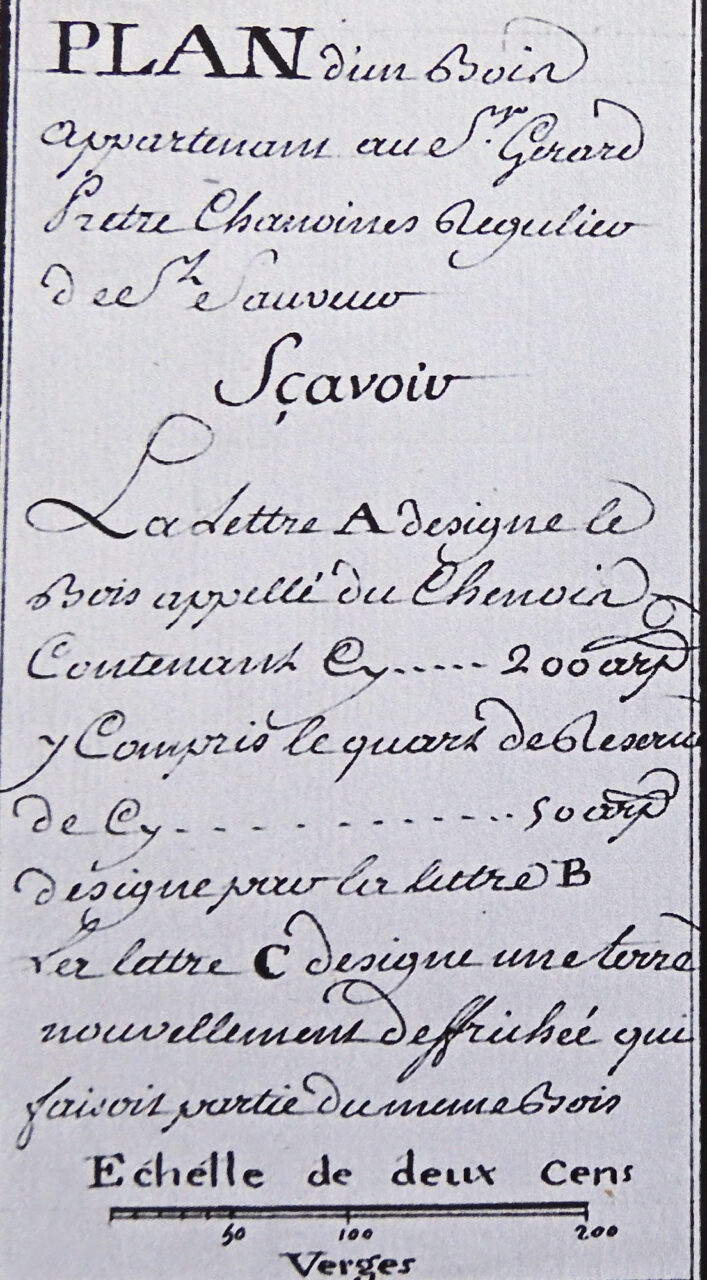 PLAN d'un Bois
appartenant au Sr. Gerard
Pretre Chanoines Regulier
de St Sauveur
Sçavoir
La Lettre A designe le
Bois appellé du Chenois
Contenant Cy..... 200 arp
y Compris le quart de Reserve
de Cy............. 50 arp
désigne par la lettre B
La lettre C designe une terre
nouvellement deffrichée qui
faisoit partie du meme Bois
Echélle de deux Cens
50 100 200
Verges